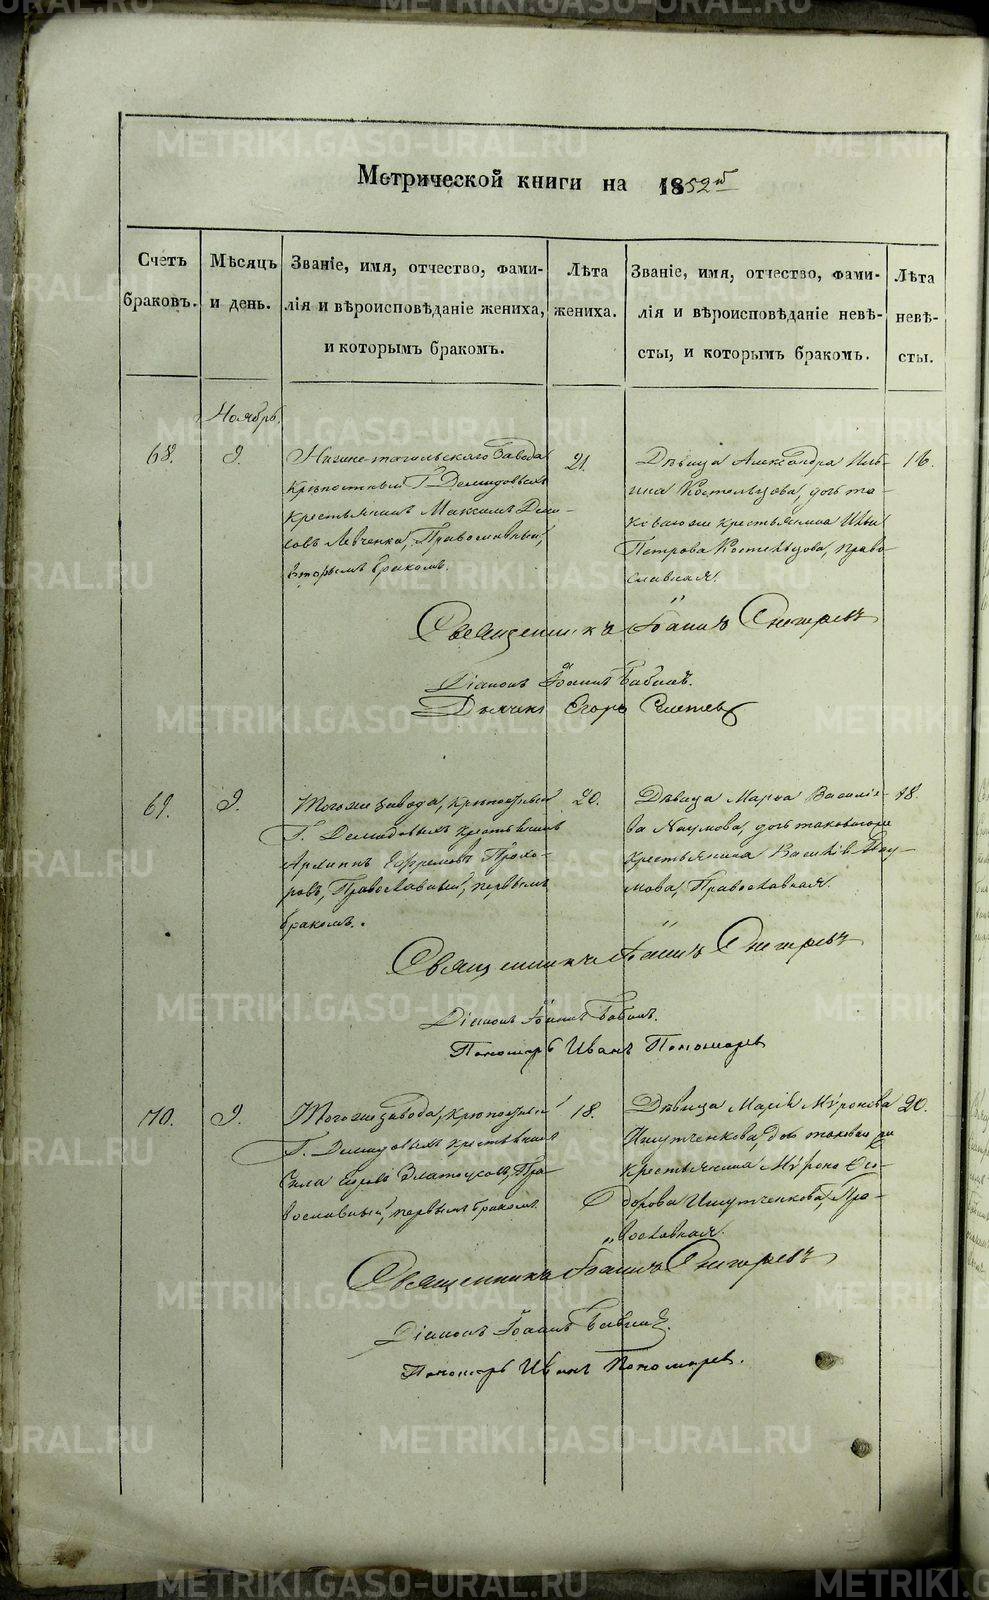 Метрической книги на 1852й
Счетъ браковъ.
Мѣсяцъ и день.
Званіе, имя, отчество, фами-
лія и вѣроисповѣданіе жениха,
и которымъ бракомъ.
Лѣта жениха.
Званіе, имя, отчество, фами-
лія и вѣроисповѣданіе невѣ-
сты, и которымъ бракомъ.
Лѣта невѣ-
сты.
Ноябрь.
68.
9.
Нижне-тагильскаго Завода
крѣпостный Г. Демидовыхъ
крестьянинъ Максимъ Дени-
совъ Левченка, Православный,
вторымъ бракомъ.
21.
Дѣвица Александра Иль-
ина Костельцова, дочь та-
коваго же крестьянина Ильи
Петрова Костельцова, право-
славная.
16.
Священникъ Іоаннъ Снегиревъ
Діаконъ Іоаннъ Бабинъ.
Дьячекъ Егоръ
69.
9.
Того же завода, крѣпостный
Г. Демидовыхъ крестьянинъ
Ефремовъ Прохо-
ровъ, Православный, первымъ
бракомъ.
20.
Дѣвица Марѳа Василіе-
ва Наумова, дочь таковаго же
крестьянина Василія Нау-
мова, Православная.
18.
Священникъ Іоаннъ Снегиревъ
Діаконъ Іоаннъ Бабинъ.
Пономарь Иванъ Пономарев
70.
9.
Того же завода, крѣпостный
Г. Демидовыхъ крестьянинъ
Сила Златоусовъ, Пра-
вославный, первымъ бракомъ.
18.
Дѣвица Марія Мѵронова
Ишутченкова, дочь таковаго же
крестьянина Мѵрона Ѳео-
дорова Ишутченкова, Пра-
вославная.
20.
Священникъ Іоаннъ Снегиревъ
Діаконъ Іоаннъ Бабин
Пономарь Иванъ Пономарев.
METRIKI.GASO-URAL.RU